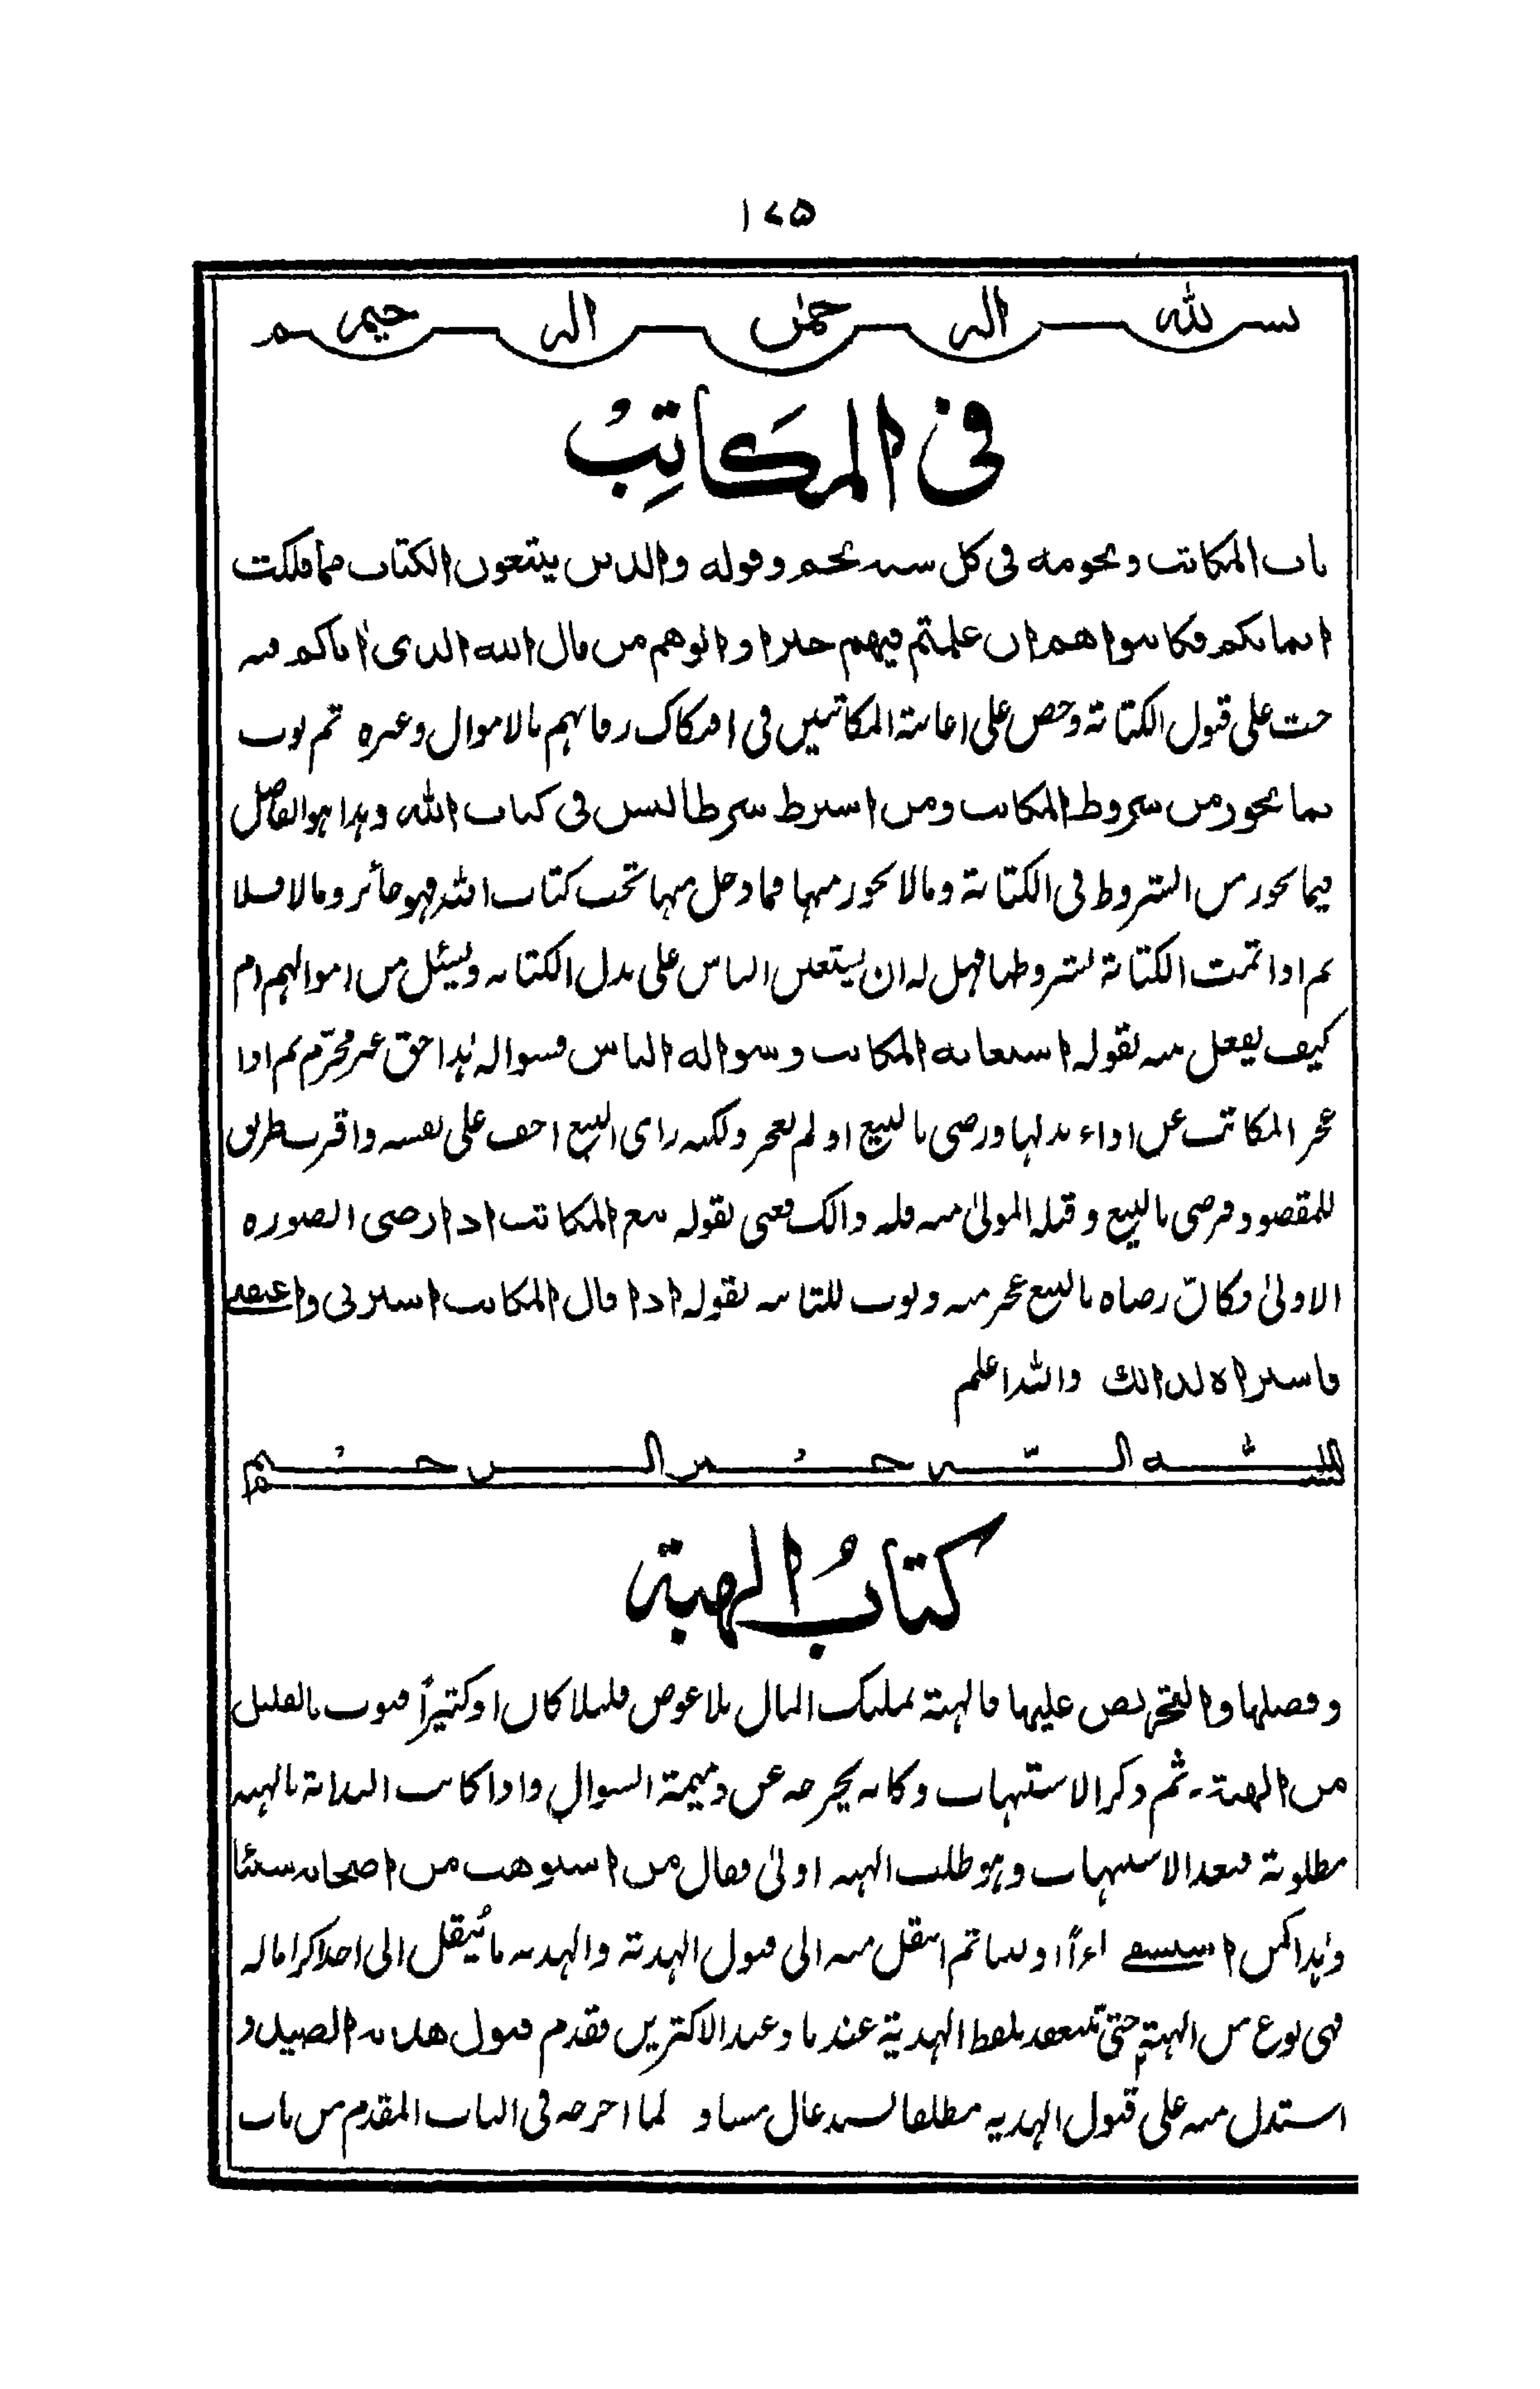 ١٧٥
بسم الله الرحمن الرحيم
فى المكاتب
باب المكاتب ونجومه فى كل سنة نجم وقوله والذين يبتغون الكتاب مما ملكت
ايمانكم فكاتبوا هم ان علمتم فيهم خيرا واتوهم من مال الله الذى اتاكم فيه
حث على قبول الكتابة وحض على اعانة المكاتبين فى افتكاك رقابهم بالاموال وغيره ثم بوب
بما يجوز من شروط المكاتب ومن اشترط شرطا ليس فى كتاب الله وهذا هو الفاصل
فيما يجوز من الشروط فى الكتابة وما لا يجوز منها فما دخل منها تحت كتاب الله فهو جائز وما لا فلا
ثم اذا تمت الكتابة بشروطها فهل له ان يستعين الناس على بدل الكتابه ويسئل من اموالهم ام
كيف يفعل فيه بقوله استعانه المكاتب وسواله الناس فسواله هذا حق غير محترم ثم اذا
عجز المكاتب عن اداء بدلها ورضى بالبيع او لم يعجز ولكنه راى البيع اخف على نفسه واقرب طريق
للمقصود فرضى بالبيع وقبله المولىٰ منه فله ذالك فعنى بقوله بيع المكاتب اذا رضى الصوره
الاولىٰ وكان رضاه بالبيع عجز منه وبوب للثانيه بقوله اذا قال المكاتب اشترنى واعتقنى
فاشتراه لذالك والله اعلم
بسم الله الرحمن الرحيم
كتاب الهبة
وفضلها والتحريض عليها فالهبة تمليك المال بلا عوض قليلا كان او كثيراً فبوب بالقليل
من الهبة ـ ثم ذكر الاستيهاب وكانه يخرجه عن ذميمة السوال واذا كانت البداية بالهبه
مطلوبة فبعد الاستيهاب وهو طلب الهبه اولىٰ فقال من استوهب من اصحابه شيئا
وهذا كمن استسقى ماءً او لبنا ثم انتقل منه الى قبول الهدية والهديه ما يُنقل الى احد اكراما له
فهى نوع من الهبة حتىٰ تنعقد بلفظ الهدية عندنا وعند الاكثرين فقدم قبول هدية الصيد و
استدل منه على قبول الهديه مطلقا لسند عال لما اخرجه فى الباب المقدم من باب